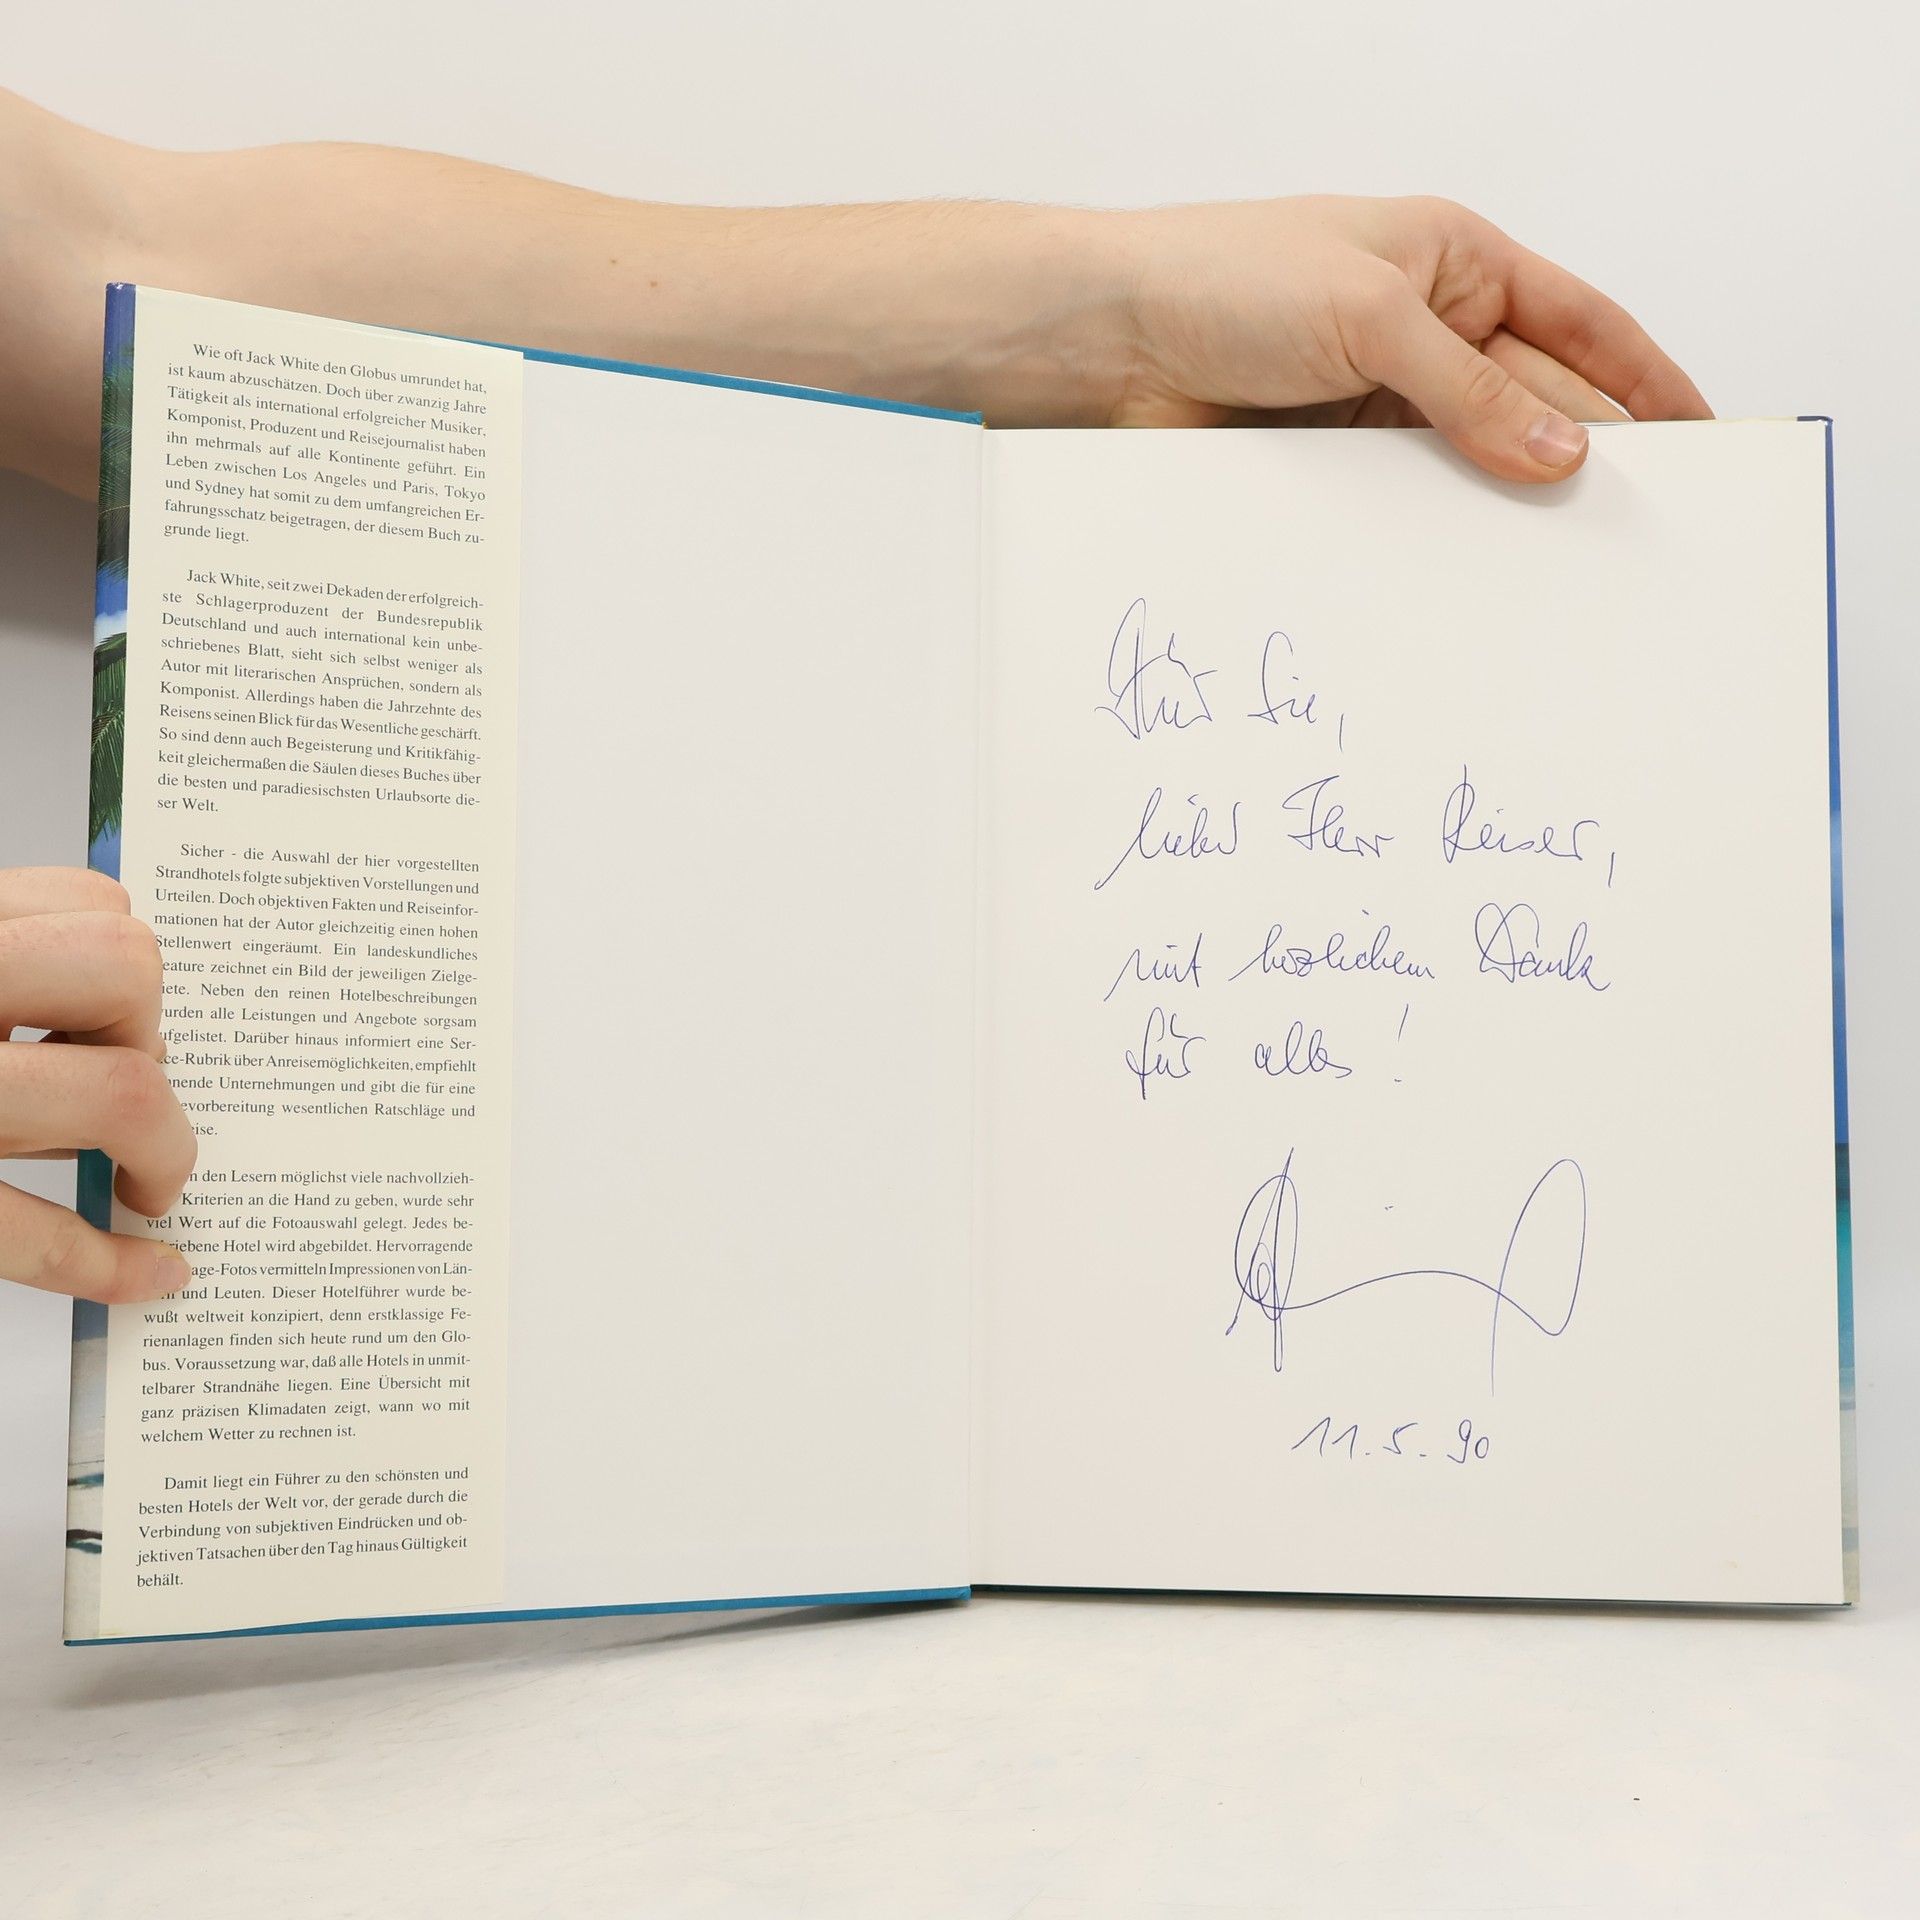 Wie oft Jack White den Globus umrundet hat,
ist kaum abzuschätzen. Doch über zwanzig Jahre
Tätigkeit als international erfolgreicher Musiker,
Komponist, Produzent und Reisejournalist haben
ihn mehrmals auf alle Kontinente geführt. Ein
Leben zwischen Los Angeles und Paris, Tokyo
und Sydney hat somit zu dem umfangreichen Er-
fahrungsschatz beigetragen, der diesem Buch zu-
grunde liegt.
Jack White, seit zwei Dekaden der erfolgreich-
ste Schlagerproduzent der Bundesrepublik
Deutschland und auch international kein unbe-
schriebenes Blatt, sieht sich selbst weniger als
Autor mit literarischen Ansprüchen, sondern als
Komponist. Allerdings haben die Jahrzehnte des
Reisens seinen Blick für das Wesentliche geschärft.
So sind denn auch Begeisterung und Kritikfähig-
keit gleichermaßen die Säulen dieses Buches über
die besten und paradiesischsten Urlaubsorte die-
ser Welt.
Sicher - die Auswahl der hier vorgestellten
Strandhotels folgte subjektiven Vorstellungen und
Urteilen. Doch objektiven Fakten und Reiseinfor-
mationen hat der Autor gleichzeitig einen hohen
Stellenwert eingeräumt. Ein landeskundliches
eature zeichnet ein Bild der jeweiligen Zielge-
iete. Neben den reinen Hotelbeschreibungen
urden alle Leistungen und Angebote sorgsam
ufgelistet. Darüber hinaus informiert eine Ser-
ce-Rubrik über Anreisemöglichkeiten, empfiehlt
nnende Unternehmungen und gibt die für eine
evorbereitung wesentlichen Ratschläge und
ise.
n den Lesern möglichst viele nachvollzieh-
Kriterien an die Hand zu geben, wurde sehr
viel Wert auf die Fotoauswahl gelegt. Jedes be-
riebene Hotel wird abgebildet. Hervorragende
age-Fotos vermitteln Impressionen von Län-
n und Leuten. Dieser Hotelführer wurde be-
wußt weltweit konzipiert, denn erstklassige Fe-
rienanlagen finden sich heute rund um den Glo-
bus. Voraussetzung war, daß alle Hotels in unmit-
telbarer Strandnähe liegen. Eine Übersicht mit
ganz präzisen Klimadaten zeigt, wann wo mit
welchem Wetter zu rechnen ist.
Damit liegt ein Führer zu den schönsten und
besten Hotels der Welt vor, der gerade durch die
Verbindung von subjektiven Eindrücken und ob-
jektiven Tatsachen über den Tag hinaus Gültigkeit
behält.
Für Sie,
lieber Herr Reiser,
mit herzlichem Dank
für alles!
11.5.90